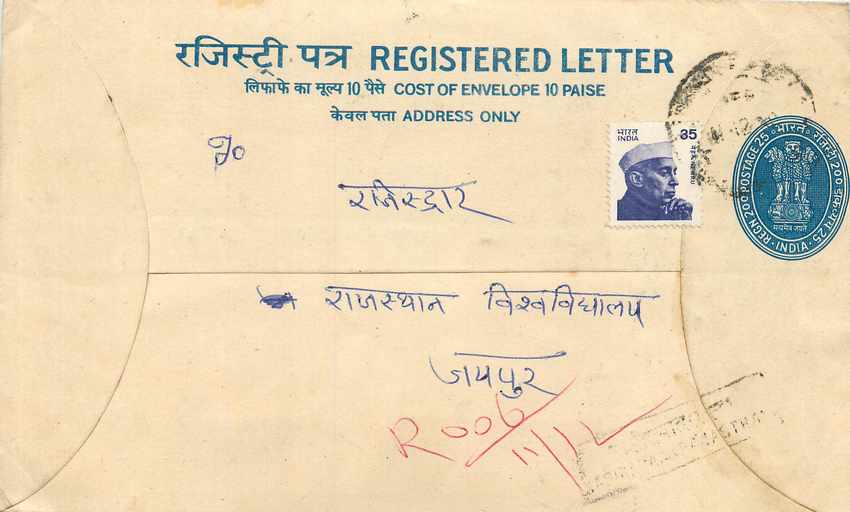 रजिस्ट्री पत्र REGISTERED LETTER
लिफाफे का मूल्य 10 पैसे COST OF ENVELOPE 10 PAISE
केवल पता ADDRESS ONLY
भारत 35
INDIA
REGN 200 POSTAGE 25 • भारत • रजिस्ट्री 200 डाकमूल्य 25 • INDIA
सत्यमेव जयते
To
रजिस्ट्रार
राजस्थान विश्वविद्यालय
जयपुर
R 006
11/12